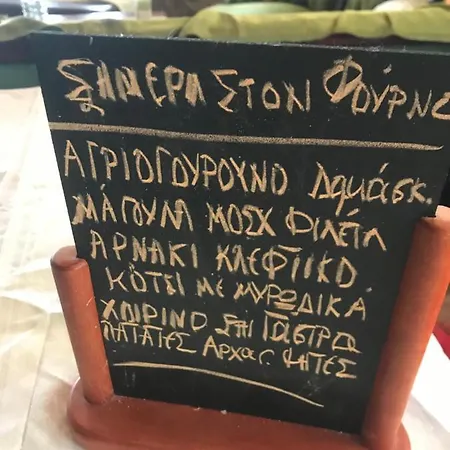 ΣΗΜΕΡΑ ΣΤΟΝ ΦΟΥΡΝΟ
ΑΓΡΙΟΓΟΥΡΟΥΝΟ Δαμάσκ.
ΜΆΓΟΥΛΑ ΜΟΣΧ ΦΙΛΈΤΑ
ΑΡΝΑΚΙ ΚΛΕΦΤΙΚΟ
ΚΌΤΣΙ ΜΕ ΜΥΡΩΔΙΚΆ
ΧΟΙΡΙΝΟ ΣΤΗ ΓΑΣΤΡΑ
ΠΑΤΑΤΕΣ ΨΗΤΕΣ